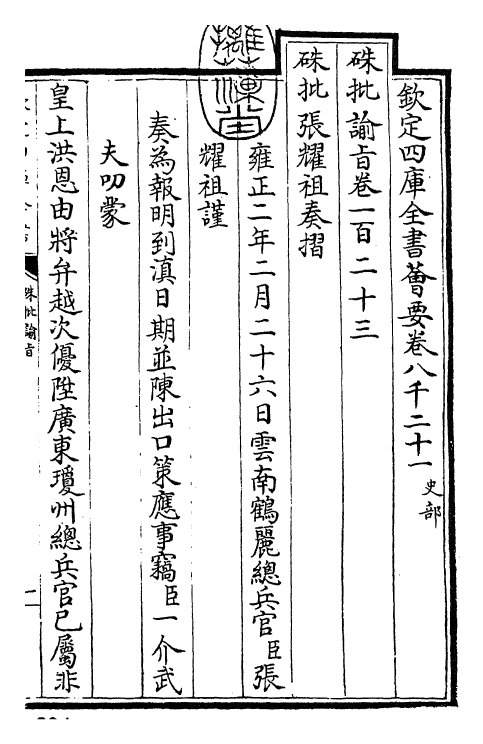 欽定四庫全書薈要卷八千二十一 史部
硃批諭旨卷一百二十三
硃批張耀祖奏摺
雍正二年二月二十六日雲南鶴麗總兵官臣張
耀祖謹
奏為報明到滇日期並陳出口策應事竊臣一介武
夫叨蒙
皇上洪恩由將弁越次優陞廣東瓊州總兵官已屬非
硃批諭旨